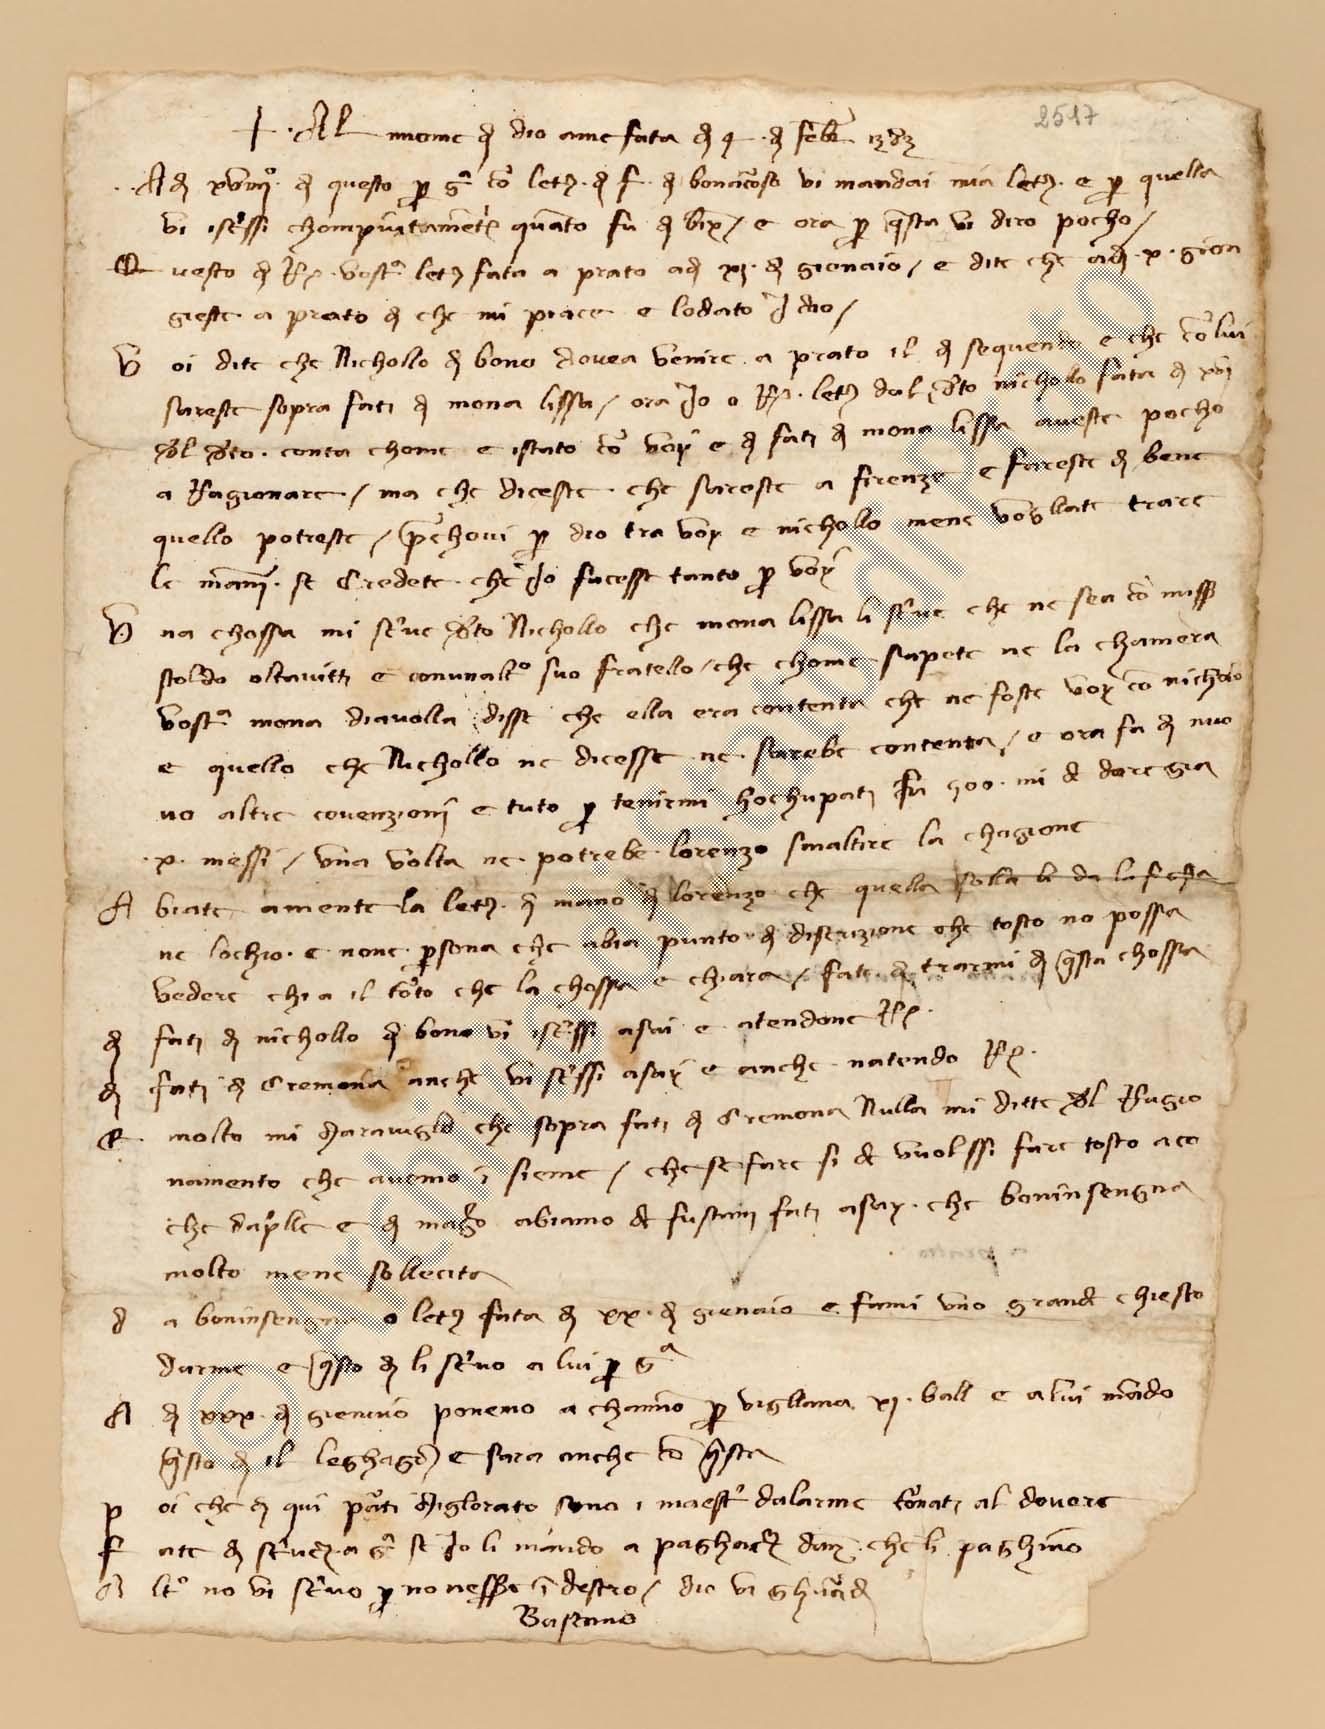 2517
+ Al nome di dio ame fata di 4 di febr 1383
Adi di questo per G.a co letr. di F. di bonacorso vi mandai mia letr. e per quella
vi iscrissi chompiutamente quanto fu di bix. e ora per questa vi diro pocho /
Questo di R. vostra letr. fata a prato adi di gienaio / e dite che adi x giun
gieste a prato di che mi piace e lodato Idio /
Voi dite che Nichollo di bono dovea venire a prato il di seguente e che co lui
sareste sopra fati di mona lissa / ora Io o R. letr. dal deto nichollo fata di xvi
del deto conta chome e istato co voi e di fati di mona lissa aveste pocho
a Ragionare / ma che diceste che sareste a firenze e fareste di bene
quello potreste / prechovi per dio tra voi e nichollo mene vogliate trare
le mani se Credete che Io facesse tanto per voi
Una chossa mi scrive deto Nichollo che mona lissa li scrive che ne sea co miss
stoldo altoviti e conunaltro suo fratello / che chome sapete ne la chamera
vostra mona diavolla disse che ella era contenta che ne foste voi co nichollo
e quello che Nichollo ne dicesse ne sarebe contenta / e ora fa di nuo
vo altre covenzioni e tuto per tenirmi hochupati fu 500 mi de dare gia
x messi / una volta ne potrebe lorenzo smaltire la chagione
Abiate amente la letr. di mano di lorenzo che quella solla li da la
ne lochio e none persona che abia punto di discrizione che tosto no possa
vedere chi a il torto che la chossa e chiara / fate di trarmi di questa chossa
di fati di nichollo di bono vi iscrissi asai e atendone R.
di fati di Cremona anche vi scrissi asai e anche natendo R.
E molto mi maraviglo che sopra fati di Cremona Nulla mi ditte del Ragio
namento che avemo in sieme / che se fare si de vuolssi fare tosto aco
che daprile e di magio abiamo de fustani fati asai che boninsengna
molto mene sollecita
da boninsengna o letr. fata di xx di gienaio e fami uno grande chiesto
darme e questo di li scrivo a lui per G.a
A di xxx di gienaio ponemo a chamino per vigliana xi ball e a lui mando
questo di il leghagio e sara anche co questa
poi che di qui parti Miglorato sono i maestri dalarme tornati al dovere
fate di scrivere a G. se Io li mando a paghare danari che li paghino
Altro no vi scrivo per no nessere in destro / dio vi ghuardi
Basciano